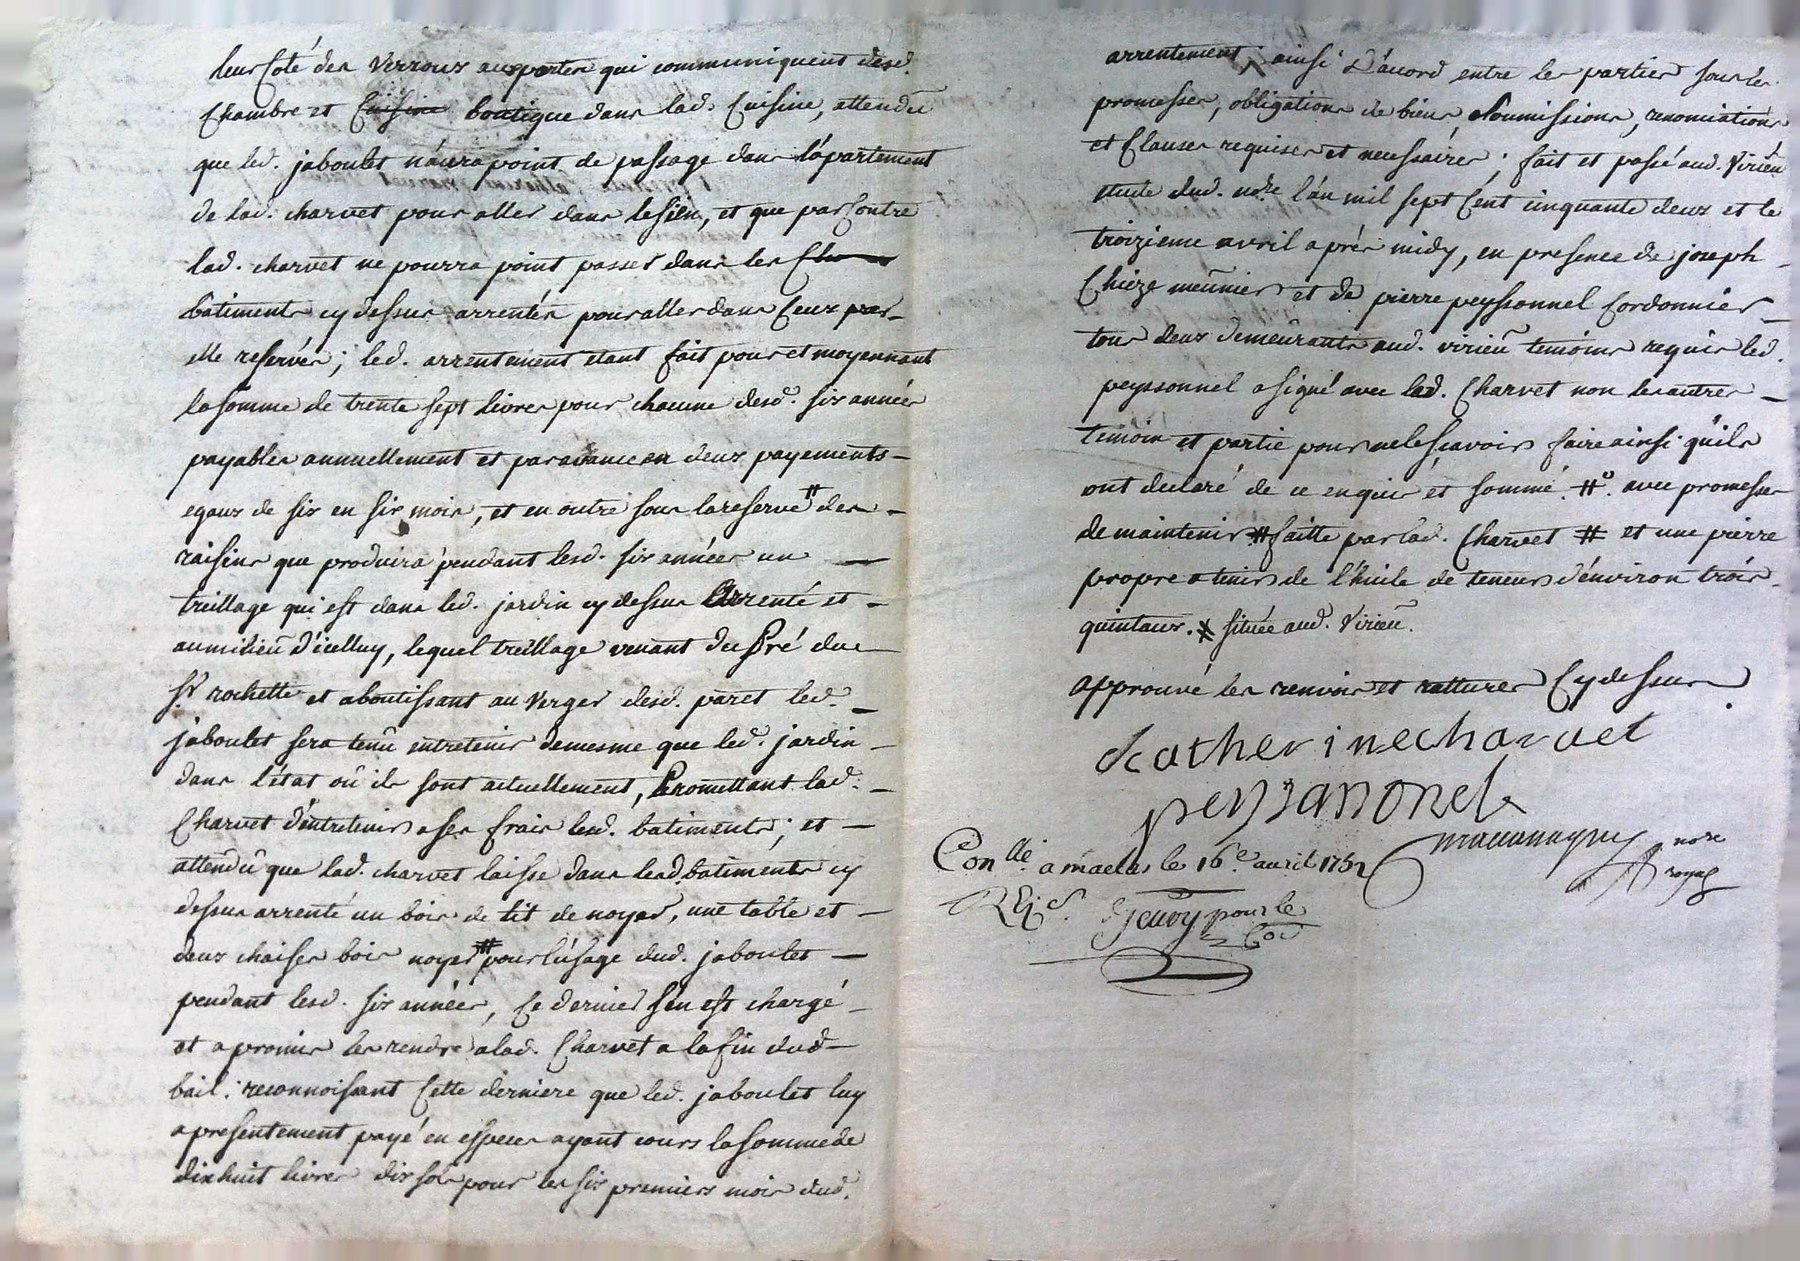 leur Coté des Verroux aux portes qui communiquent desd.
Chambre et Cuisine boutique dans lad. Cuisine, attendu
que led. jaboulet n'aura point de passage dans l'apartement
de lad. charvet pour aller dans le sien, et que par Contre
lad. charvet ne pourra point passer dans les Cha
batiments cy dessus arrentés pour aller dans Ceux par
elle reservés; led. arrentement etant fait pour et moyennant
la somme de trente sept livres pour chacune desd. six années
payables annuellement et par avance en deux payements
egaux de six en six mois, et en outre sous la reserve # des
raisins que produira pendant lesd. six années un
treillage qui est dans led. jardin cy dessus Arrenté et
au milieu d'icelluy, lequel treillage venant du Pré du
Sr. rochette et aboutissant au Verger desd. paret led.
jaboulet sera tenû entretenir de mesme que led. jardin
dans l'état où ils sont actuellement, Promettant lad.
Charvet d'entretenir a ses frais lesd. batiments; et
attendû que lad. charvet laisse dans lesd. batiments cy
dessus arrenté un bois de lit de noyer, une table et
deux chaises bois noyer # pour l'usage dud. jaboulet
pendant lesd. six années, Ce dernier s'en est chargé
et a promis les rendre a lad. Charvet a la fin dud.
bail: reconnoissant Cette derniere que led. jaboulet luy
a presentement payé en especes ayant cours la somme de
dix huit livres dix sols pour les six premiers mois dud.
arrentement; ainsi D'acord entre les parties sous les
promesses, obligations de biens, Soumissions, renonciations
et Clauses requises et necessaires; fait et passé aud. Virieu
etude dud. nore. l'an mil sept Cent cinquante deux et le
troizieme avril aprés midy, en presence de joseph
Chieze meûnier et de pierre peyssonnel Cordonnier
tous deux demeurants aud. virieû temoins requis led.
peyssonnel a signé avec lad. Charvet non les autres
temoin et partie pour ne le sçavoir faire ainsi qu'ils
ont declaré de ce enquis et sommé. #o. avec promesse
de maintenir # faitte par lad. Charvet # et une pierre
propre a tenir de l'huile de teneur d'environ trois
quintaux. # située aud. Virieu.
approuvé les renvois et rattures Cy dessus.
Catherine charvet
peyssonnel
nore
royal
Conllé a maclas le 16e. avril 1752
pour le